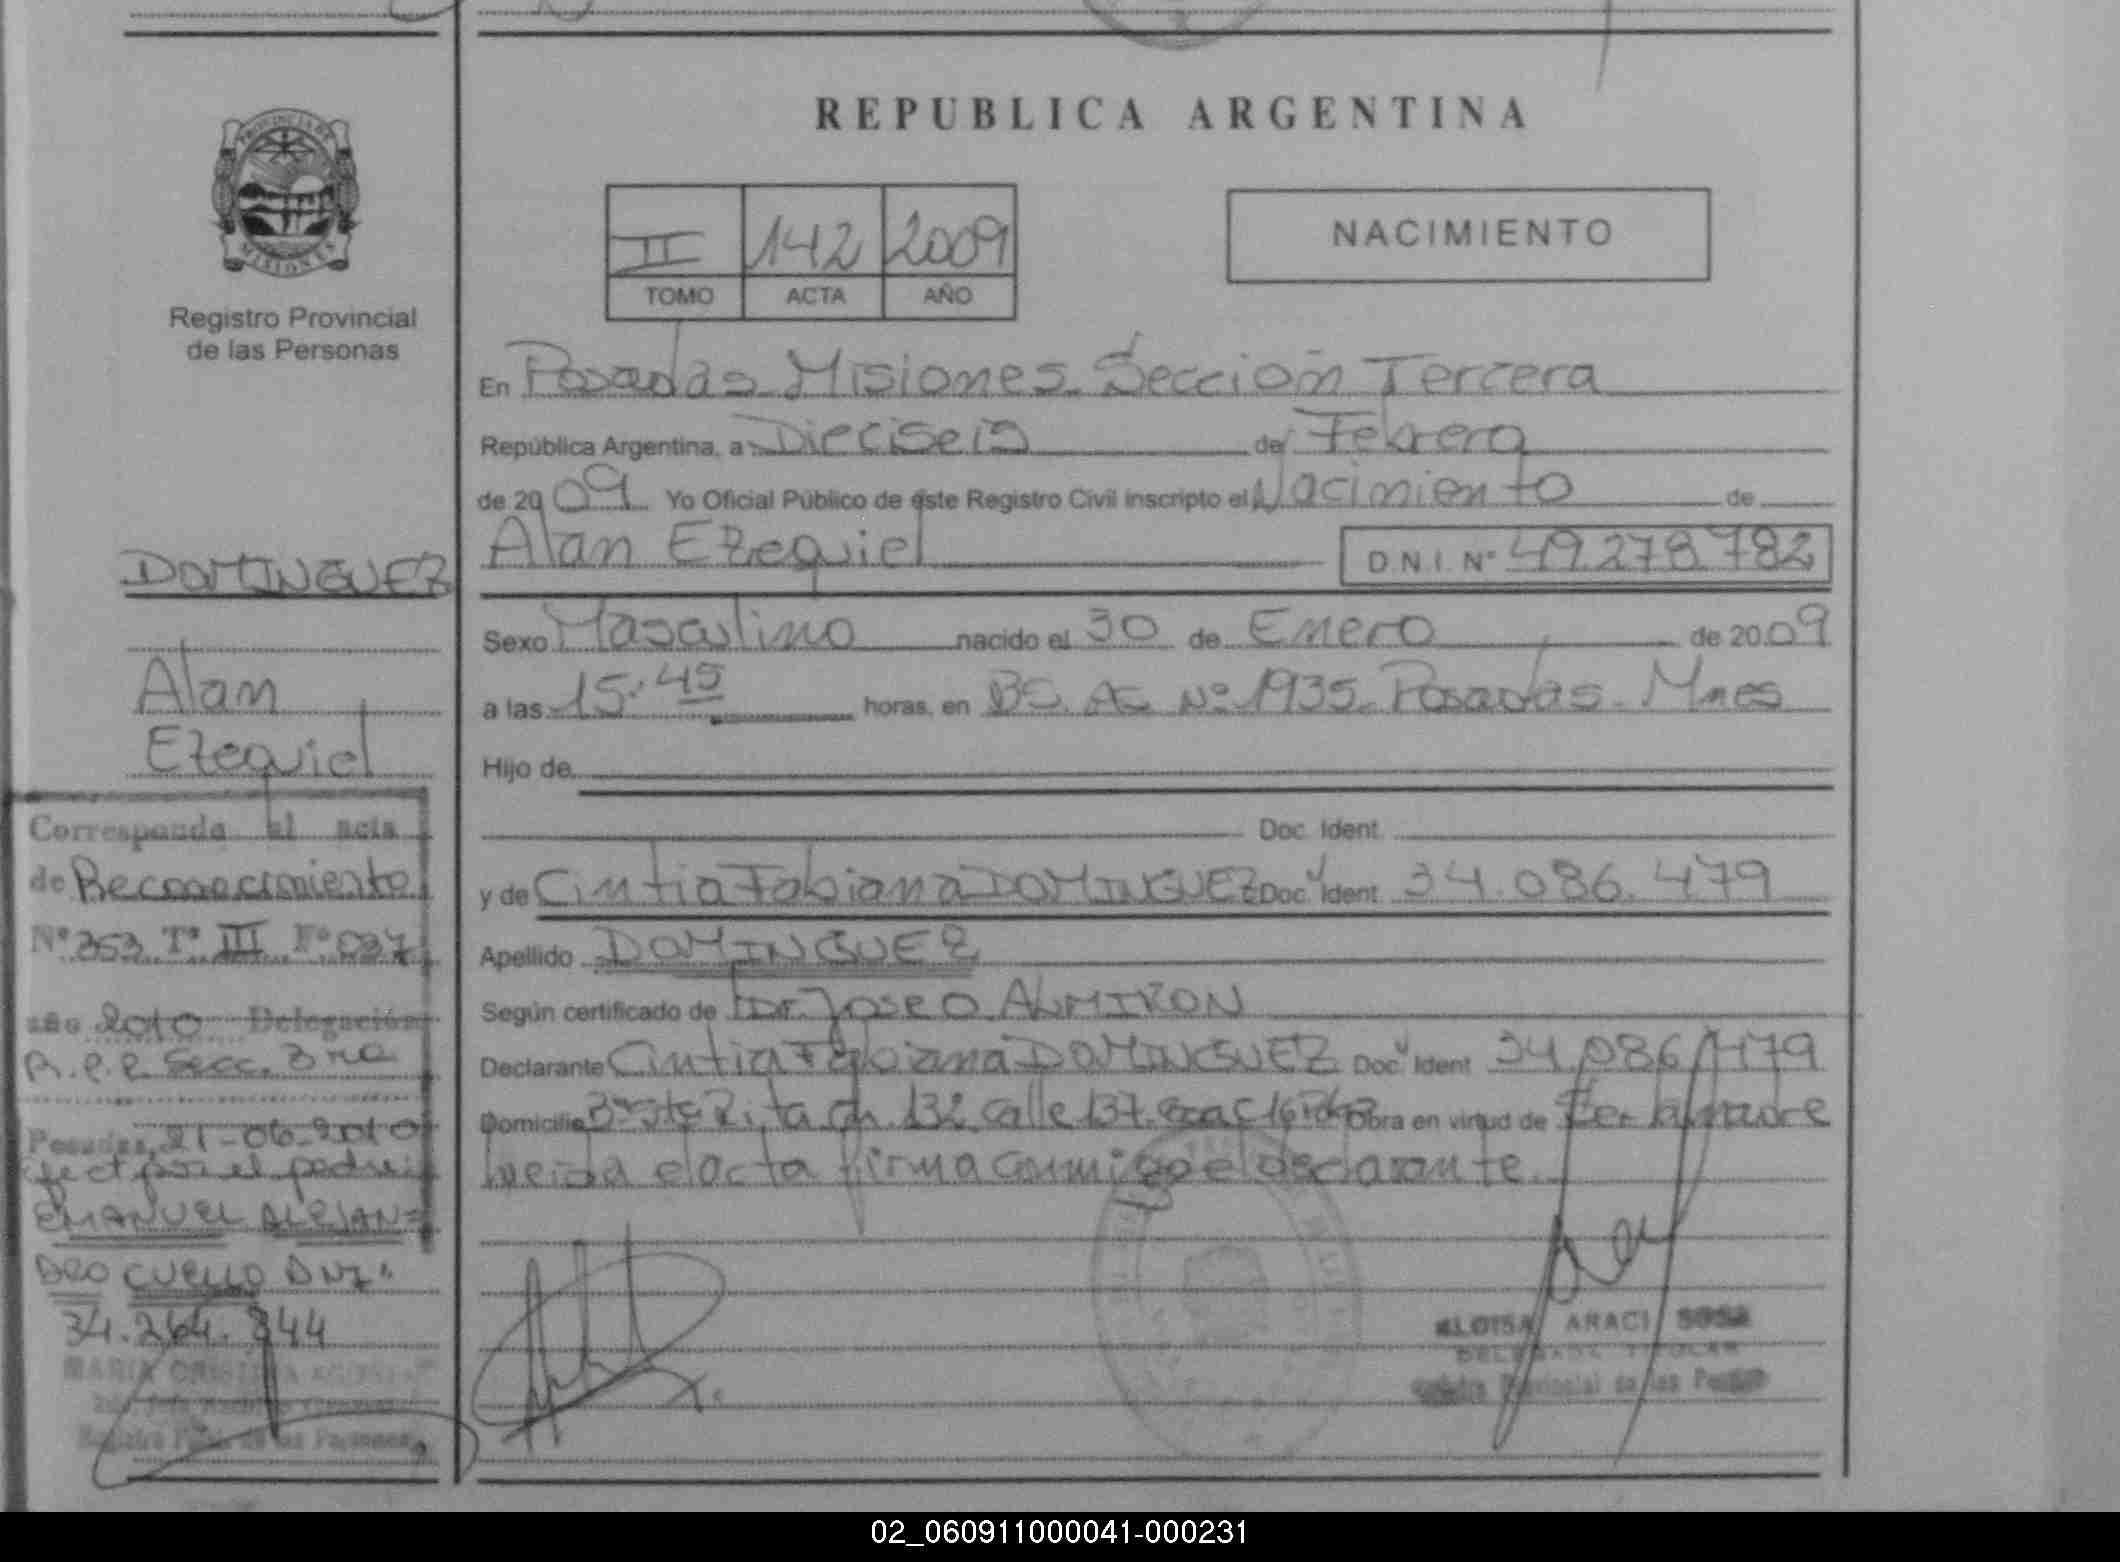 PROVINCIA DE
MISIONES
Registro Provincial
de las Personas
DOMINGUEZ
Alan
Ezequiel
Corresponde al acta
de Reconocimiento
Nº 353 Tº III Fº 037
año 2010 Delegación
R.P.P. Secc. 3ra
Posadas, 21-06-2010
efect por el padre
EMANUEL ALEJAN=
DRO CUELLO DNIº
34.264.844
MARIA CRISTINA
REPUBLICA ARGENTINA
II 142 2009
TOMO ACTA AÑO
NACIMIENTO
En Posadas Misiones Sección Tercera
República Argentina, a Dieciseis de Febrero
de 2009 Yo Oficial Público de este Registro Civil inscripto el Nacimiento de
Alan Ezequiel D.N.I. Nº 49.278.782
Sexo Masculino nacido el 30 de Enero de 2009
a las 15:45 horas, en BS. AS. Nº 1935. Posadas. Mnes
Hijo de
Doc. Ident.
y de Cintia Fabiana DOMINGUEZ Doc. Ident. 34.086.479
Apellido DOMINGUEZ
Según certificado de Dr. JOSE O. ALMIRON
Declarante Cintia Fabiana DOMINGUEZ Doc. Ident. 34.086.479
Domicilio Bº Sta Rita Ch. 132 calle 137 Obra en virtud de Ser la madre
leída el acta firma conmigo el declarante.
ELOISA ARACI SOSA
DELEGADA TITULAR
Registro Provincial de las Personas
02_060911000041-000231